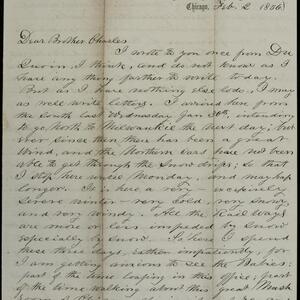 Chicago, Feb. 2 1856
Dear Brother Charles
I wrote to you once from De
I think, and do not know as I
have any thing farther to write to day.
But as I have nothing else to do, I may
as well write letters. I arrived here from
the South last Wednesday Jan 30th, intending
to go North to Milwaukie the next day; but
ever since then there has been a great
wind, and the Northern cars have not been
able to get through the snow drifts; so that
I stop here until Monday, and may hap
longer. It is here a very - excessively
severe winter - very cold, very snowy,
and very windy. All the Rail Ways
are more or less impeded by snow
especially by snow. So here I spend
these three days, rather impatiently, for
I am getting anxious to see the Babies;
part of the time loafing in this office, part
of the time walking about this great Mush